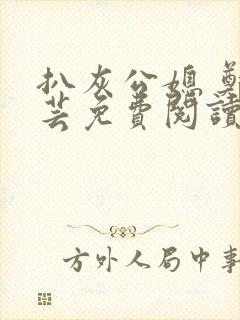 扒灰公媳 鄭
芸免費閱讀
方外人局中事